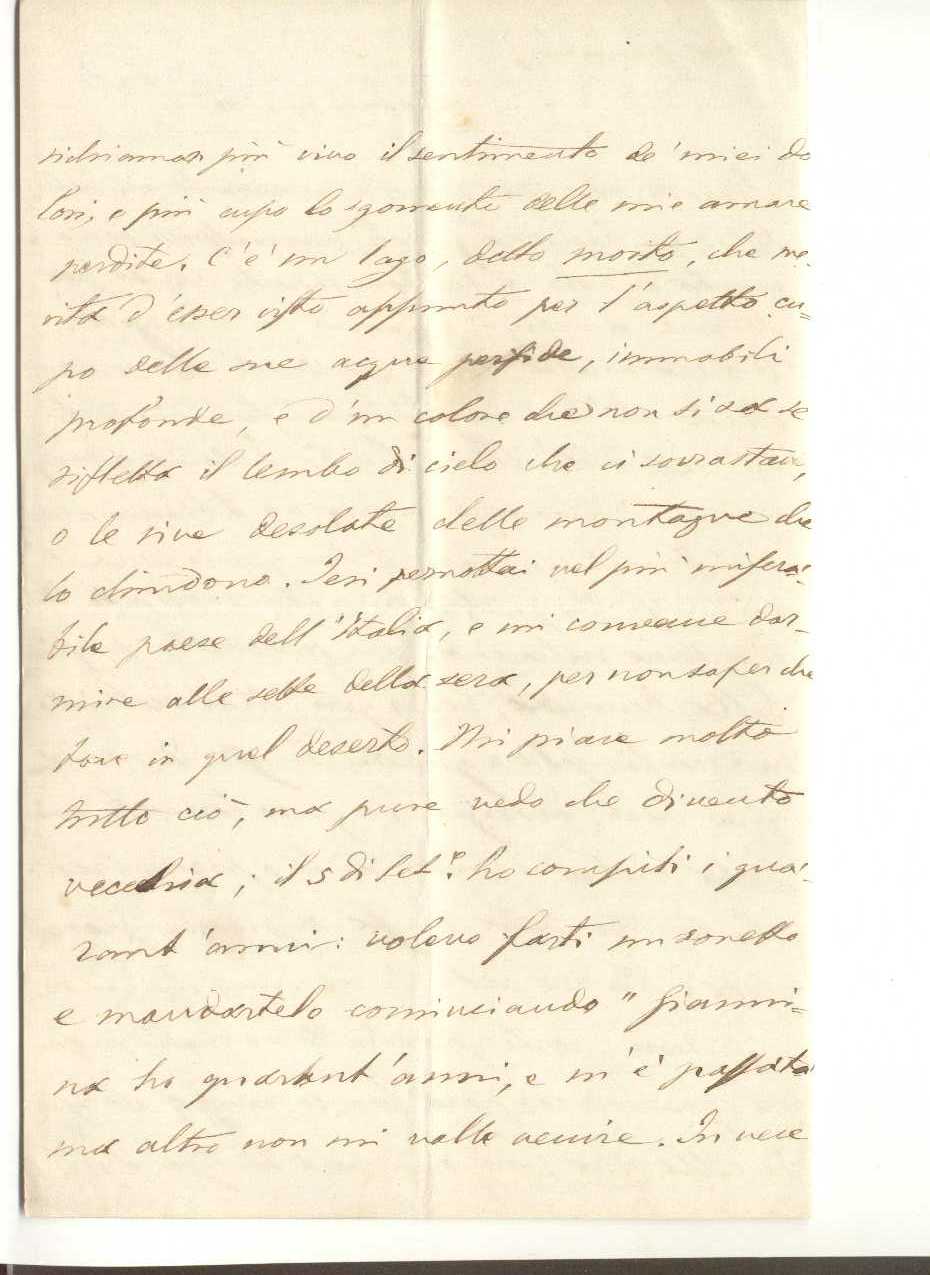 richiaman più vivo il sentimento de' miei do
lori, e più cupo lo sgomento delle mie amare
perdite. C'è un lago, detto morto, che me-
rita d'esser visto appunto per l'aspetto cu=
po delle sue acque perfide, immobili
profonde, e d'un colore che non si sa se
rifletta il lembo di cielo che ci sovrasta,
o le rive desolate delle montagne che
lo chiudono. Ieri pernottai nel più misera-
bile paese dell'Italia, e mi convenne dor-
mire alle sette della sera, per non saper che
fare in quel deserto. Mi piace molto
tutto ciò, ma pure vedo che divento
vecchia; il 5 di set.e ho compiti i qua-
rant'anni: volevo farti un sonetto
e mandartelo cominciando "Gianni=
na ho quarant'anni, e m'è passata
ma altro non mi volle venire. In vece